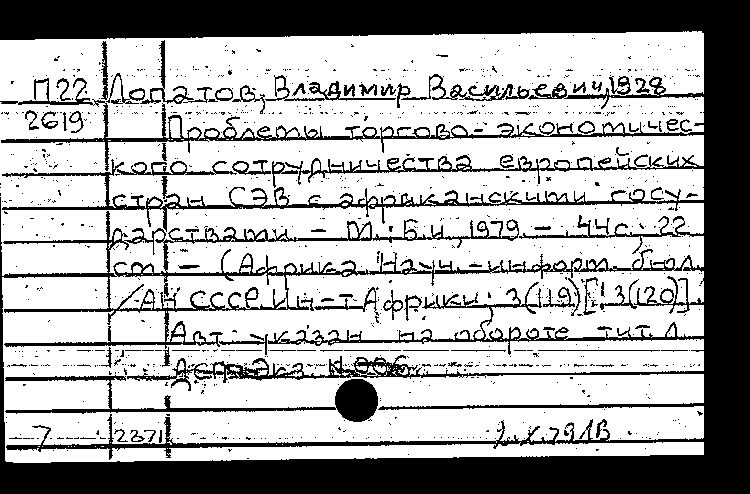 П22 Лопатов, Владимир Васильевич, 1928
2619 Проблемы торгово-экономичес-
кого сотрудничества европейских
стран СЭВ с африканскими госу-
дарствами. - М.: Б.и., 1979. - 44с.; 22
см - (Африка. Науч.-информ. бюл.
/АН СССР. Ин-т Африки; 3(119)[! 3(120)].
Авт. указан на обороте тит. л.
Деп. Экз. N 006
7 2371 2.X.79 1В